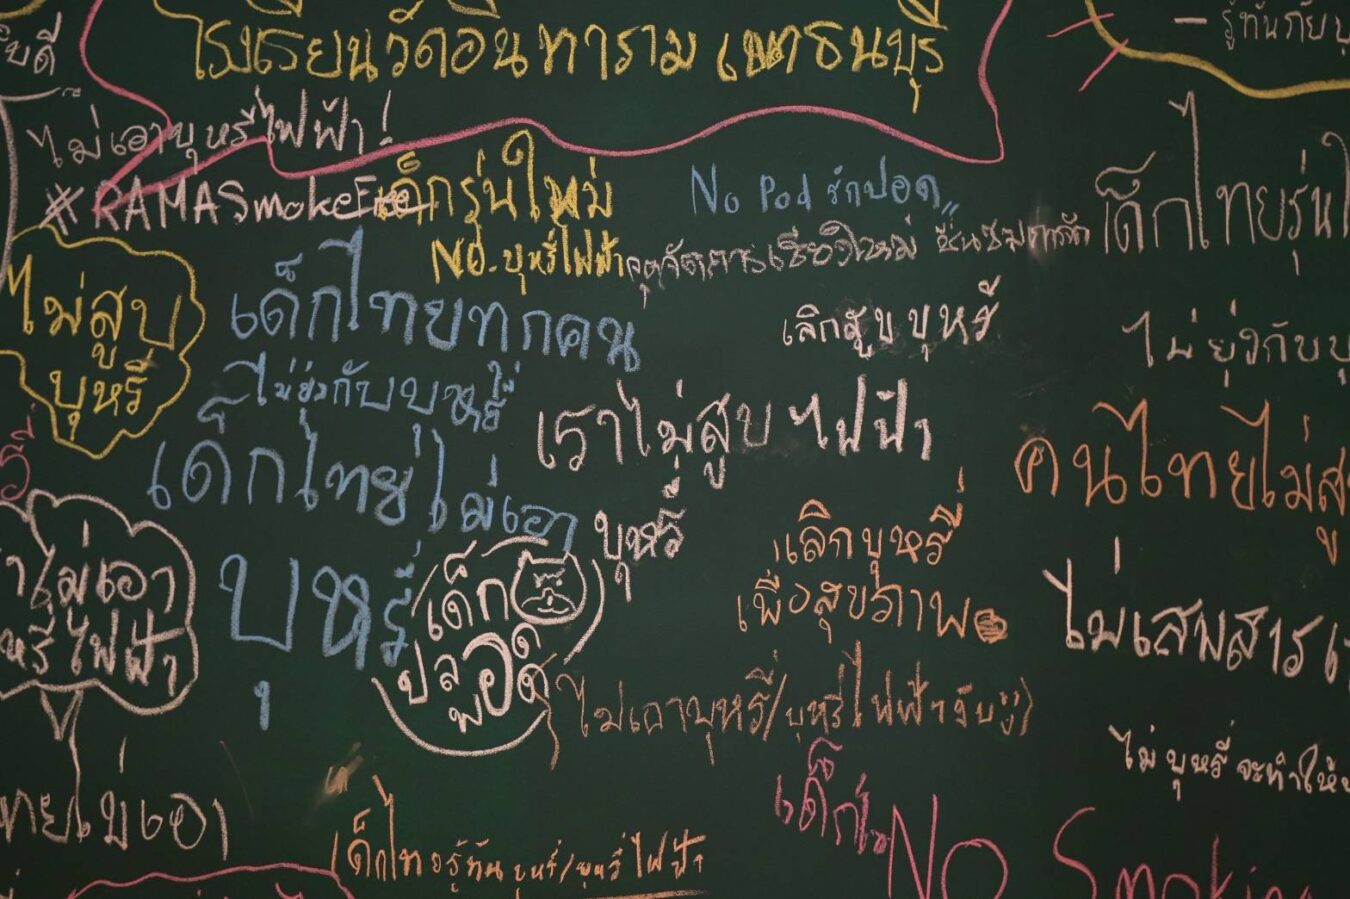 โรงเรียนวัดอินทาราม เขตธนบุรี
รู้ทันภัยบุ
ไม่เอาบุหรี่ไฟฟ้า!
#RAMASmokeFree
เด็กรุ่นใหม่
NO.บุหรี่ไฟฟ้า
No Pod รักปอด
เด็กไทยรุ่นใ
ไม่สูบ
บุหรี่
เด็กไทยทุกคน
ไม่ยุ่งกับบุหรี่
เลิกสูบบุหรี่
ไม่ยุ่งกับบุ
เราไม่สูบไฟฟ้า
บุหรี่
เด็กไทยไม่เอา
บุหรี่
คนไทยไม่สู
เลิกบุหรี่
เพื่อสุขภาพ
ไม่เอา
หรี่ไฟฟ้า
เด็ก
ปลอด
พอด
ไม่เสพสาร
ไม่เอาบุหรี่/บุหรี่ไฟฟ้างับ
ไม่บุหรี่จะทำให้
ไทยไม่เอา
เด็กไทยรู้ทันบุหรี่/บุหรี่ไฟฟ้า
NO Smoking